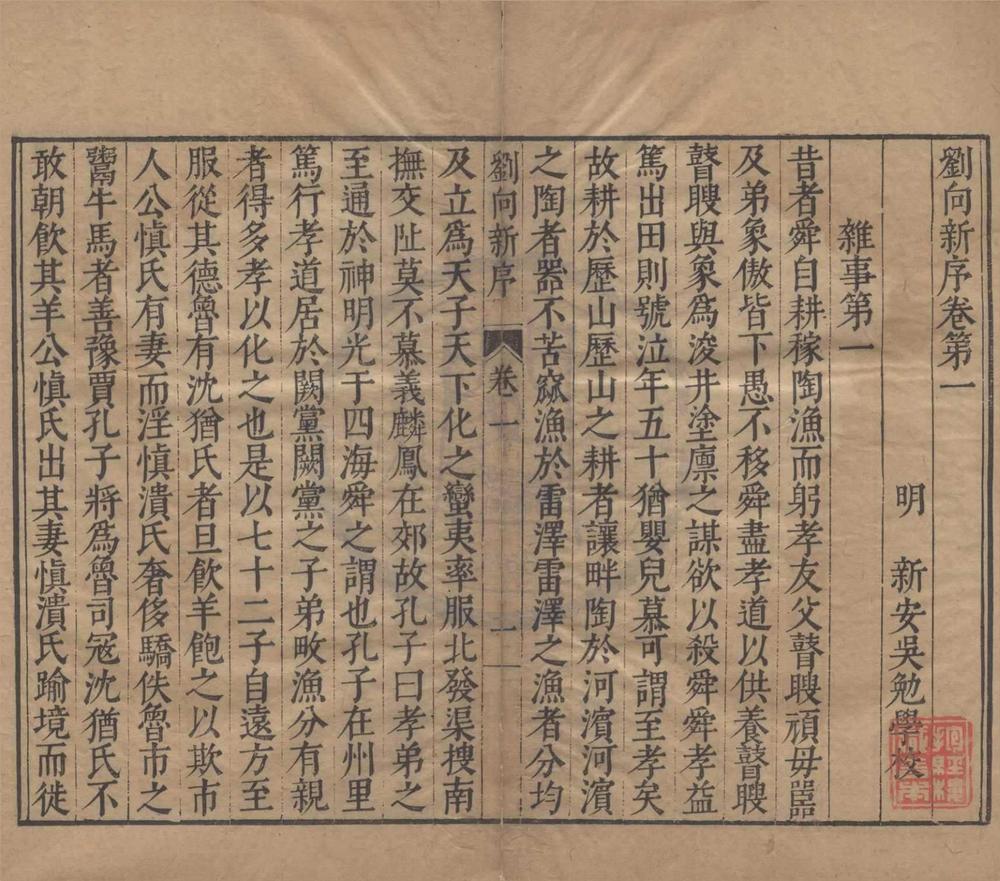 劉向新序卷第一
明 新安吳勉學校
雜事第一
昔者舜自耕稼陶漁而躬孝友父瞽瞍頑母嚚
及弟象傲皆下愚不移舜盡孝道以供養瞽瞍
瞽瞍與象爲浚井塗廪之謀欲以殺舜舜孝益
篤出田則號泣年五十猶嬰兒慕可謂至孝矣
故耕於歷山歷山之耕者讓畔陶於河濱河濱
之陶者器不苦窳漁於雷澤雷澤之漁者分均
劉向新序 卷一 一
及立爲天子天下化之蠻夷率服北發渠搜南
撫交阯莫不慕義麟鳳在郊故孔子曰孝弟之
至通於神明光于四海舜之謂也孔子在州里
篤行孝道居於闕黨闕黨之子弟畋漁分有親
者得多孝以化之也是以七十二子自遠方至
服從其德魯有沈猶氏者旦飲羊飽之以欺市
人公慎氏有妻而淫慎潰氏奢侈驕佚魯市之
鬻牛馬者善豫賈孔子將爲魯司冦沈猶氏不
敢朝飲其羊公慎氏出其妻慎潰氏踰境而徙